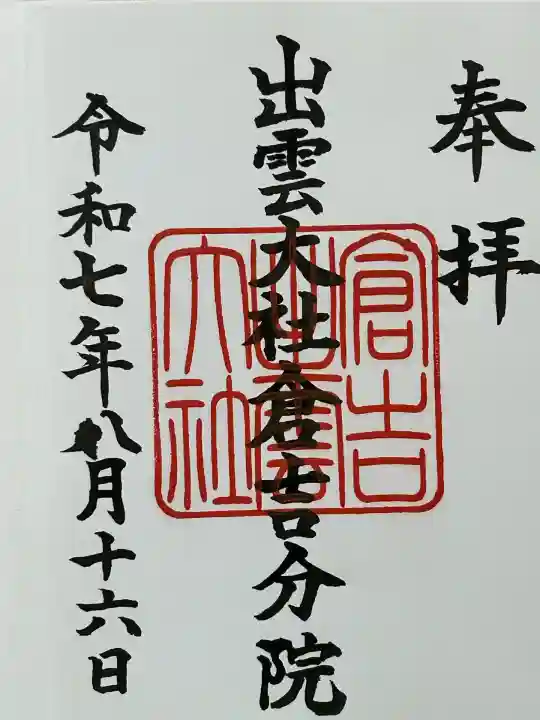 奉拝
出雲大社倉吉分院
倉吉
出雲
大社
令和七年八月十六日